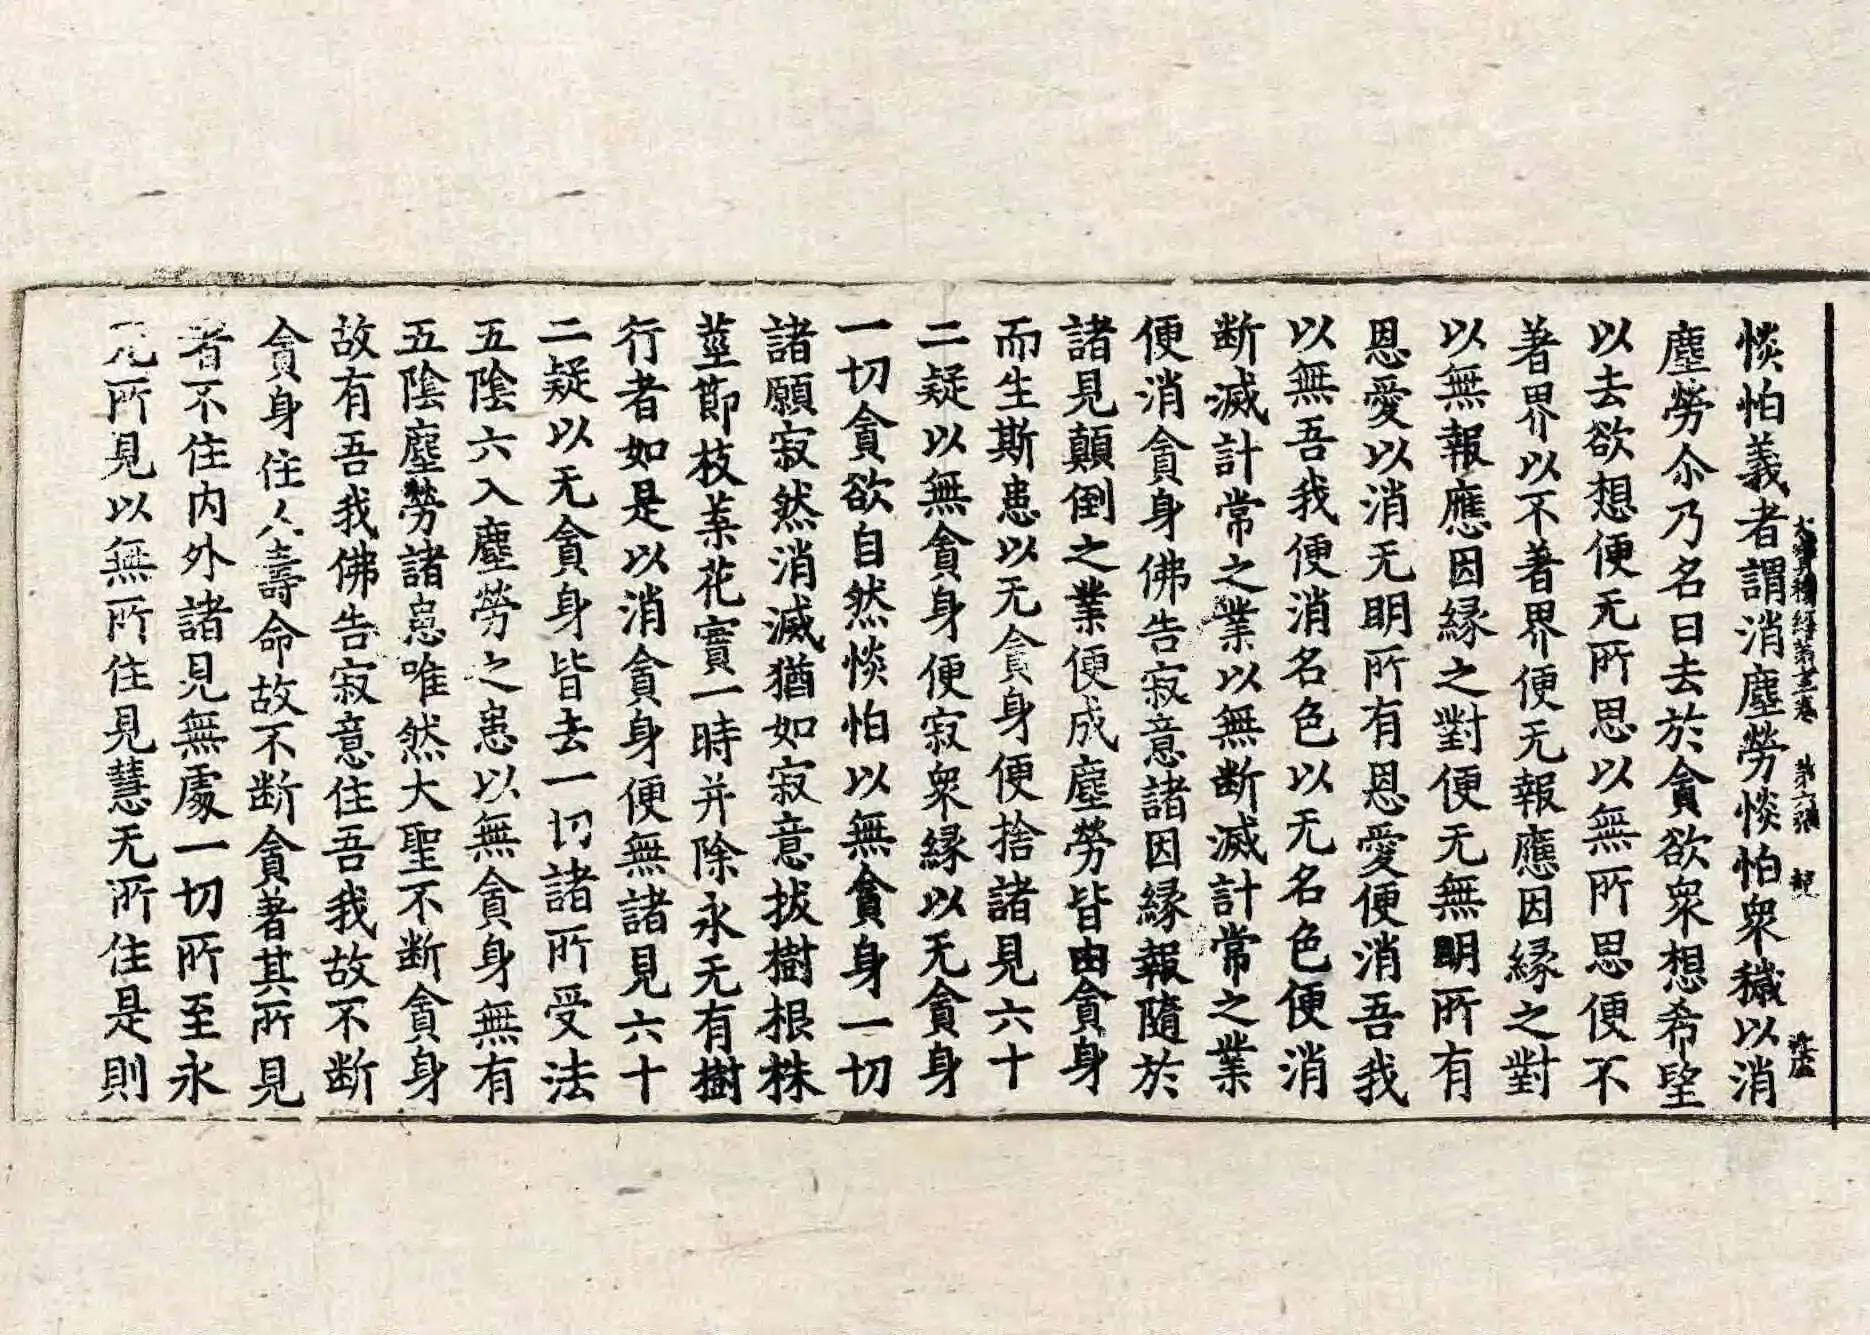 惔怕義者謂消塵勞惔怕衆穢以消
塵勞尒乃名曰去於貪欲衆想希望
以去欲想便无所思以無所思便不
著界以不著界便无報應因縁之對
以無報應因縁之對便无無明所有
恩愛以消无明所有恩愛便消吾我
以無吾我便消名色以无名色便消
断滅計常之業以無断滅計常之業
便消貪身佛告寂意諸因縁報隨於
諸見顛倒之業便成塵勞皆由貪身
而生斯患以无貪身便捨諸見六十
二疑以無貪身便寂衆縁以无貪身
一切貪欲自然惔怕以無貪身一切
諸願寂然消滅猶如寂意拔樹根株
莖節枝葉花實一時并除永无有樹
行者如是以消貪身便無諸見六十
二疑以无貪身皆去一切諸所受法
五陰六入塵勞之患以無貪身無有
五陰塵勞諸患唯然大聖不断貪身
故有吾我佛告寂意住吾我故不断
貪身住人壽命故不断貪著其所見
者不住内外諸見無處一切所至永
无所見以無所住見慧无所住是則
大寶積經第十三卷　第六張